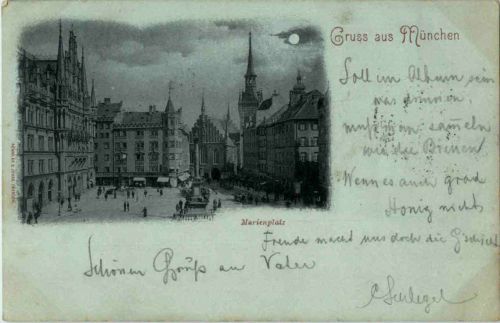 Gruss aus München
Soll im Album sein
was drinnen,
muß man sameln
wie die Bienen
Wenn es auch grad
Honig nicht
Marienplatz
Freude macht uns doch die
Schönen Gruß an Vater